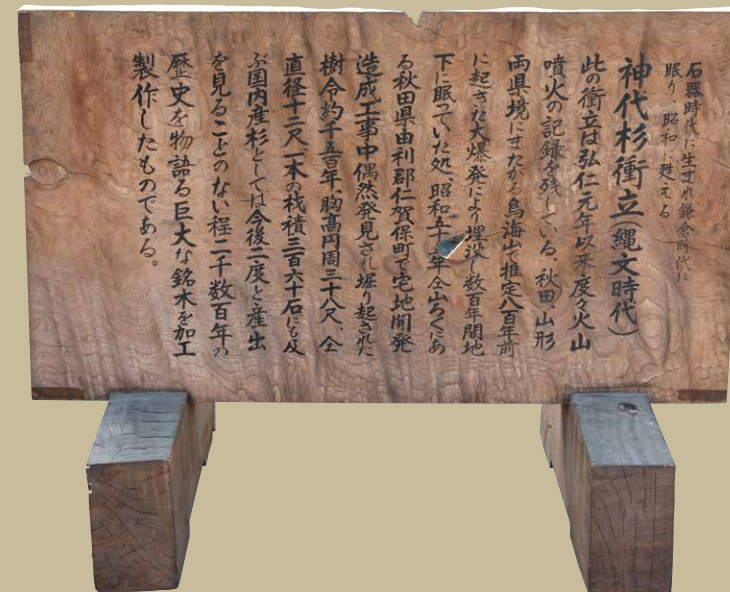 石器時代に生まれ鎌倉時代に
眠り、昭和に甦える
神代杉衝立(縄文時代)
此の衝立は弘仁元年以来度々火山
噴火の記録を残している、秋田、山形
両県境にまたがる鳥海山で推定八百年前
に起きた大爆発により埋没し数百年間地
下に眠っていた処、昭和五十年仝山ろくにあ
る秋田県由利郡仁賀保町で宅地開発
造成工事中偶然発見され堀り起された
樹令約千五百年、胸高円周三十八尺、仝
直径十二尺一本の材積三百六十石にも及
ぶ国内産杉としては今後二度と産出
を見ることのない程二千数百年の
歴史を物語る巨大な銘木を加工
製作したものである。